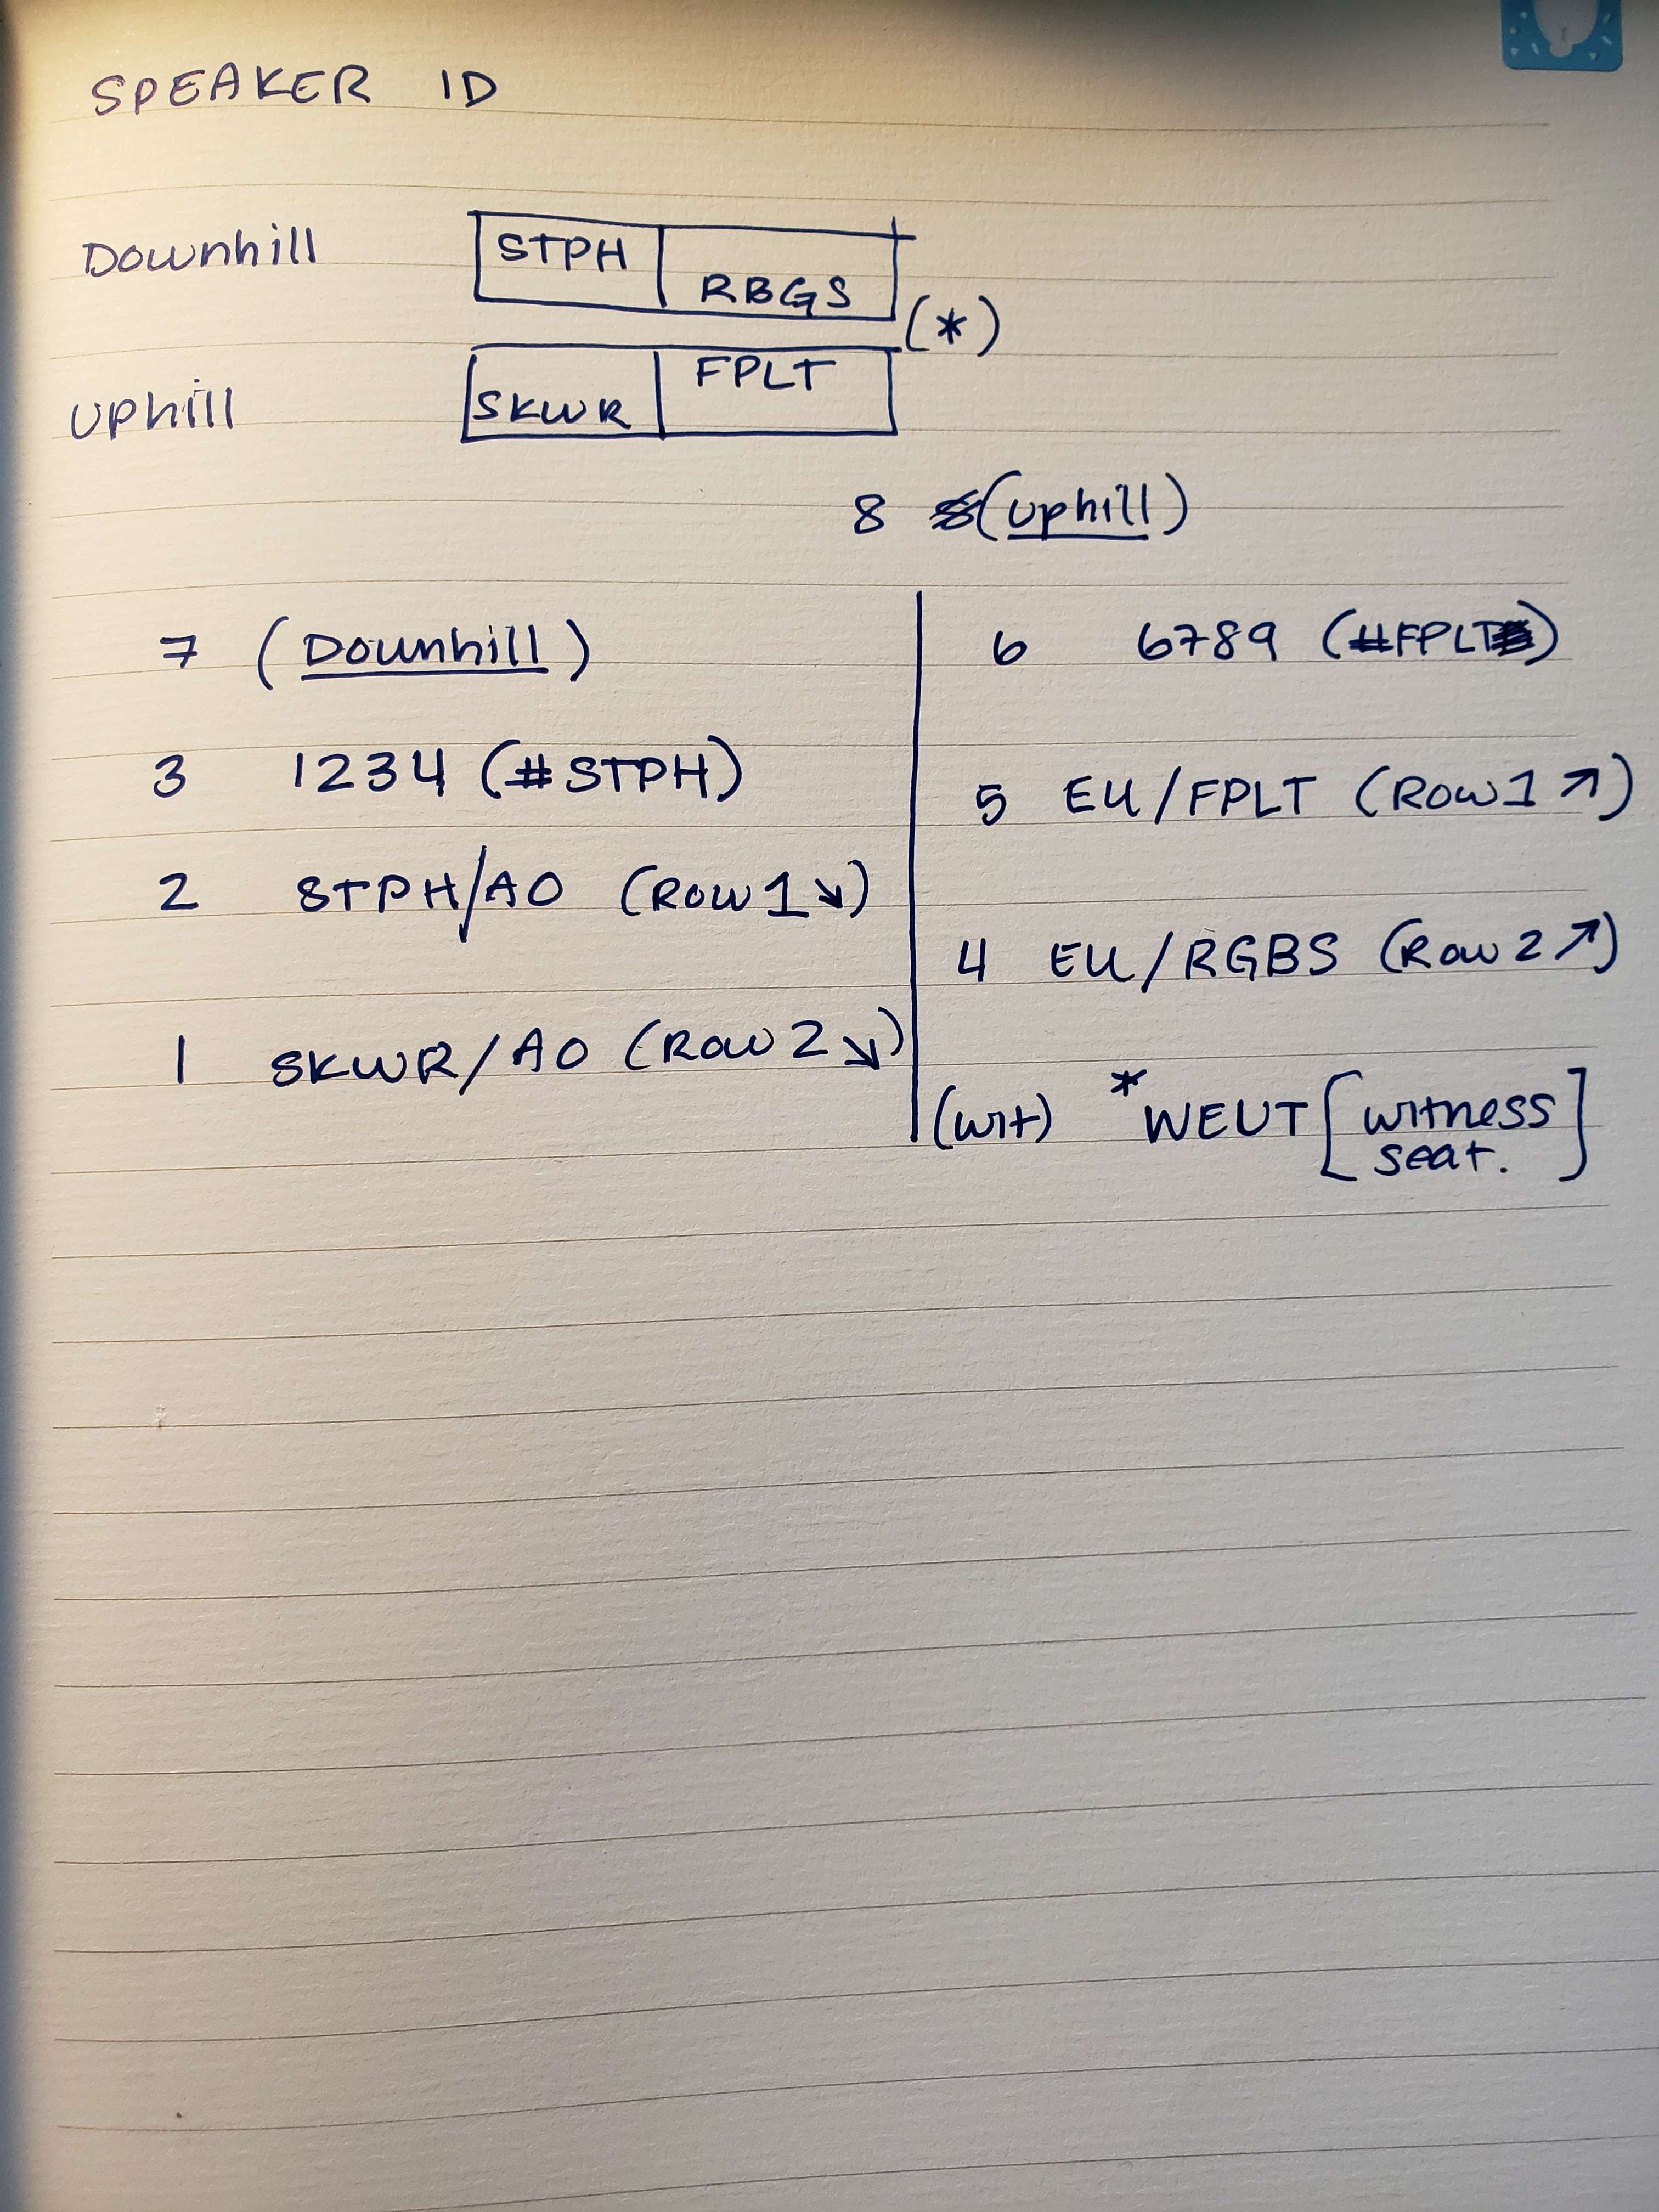 SPEAKER ID
Downhill STPH RBGS
(*)
Uphill SKWR FPLT
8 (Uphill)
7 (Downhill)
3 1234 (#STPH)
2 STPH/AO (Row 1 ↘)
1 SKWR/AO (Row 2 ↘)
6 6789 (#FPLT)
5 EU/FPLT (Row 1 ↗)
4 EU/RGBS (Row 2 ↗)
(wit) *WEUT [witness
seat.]